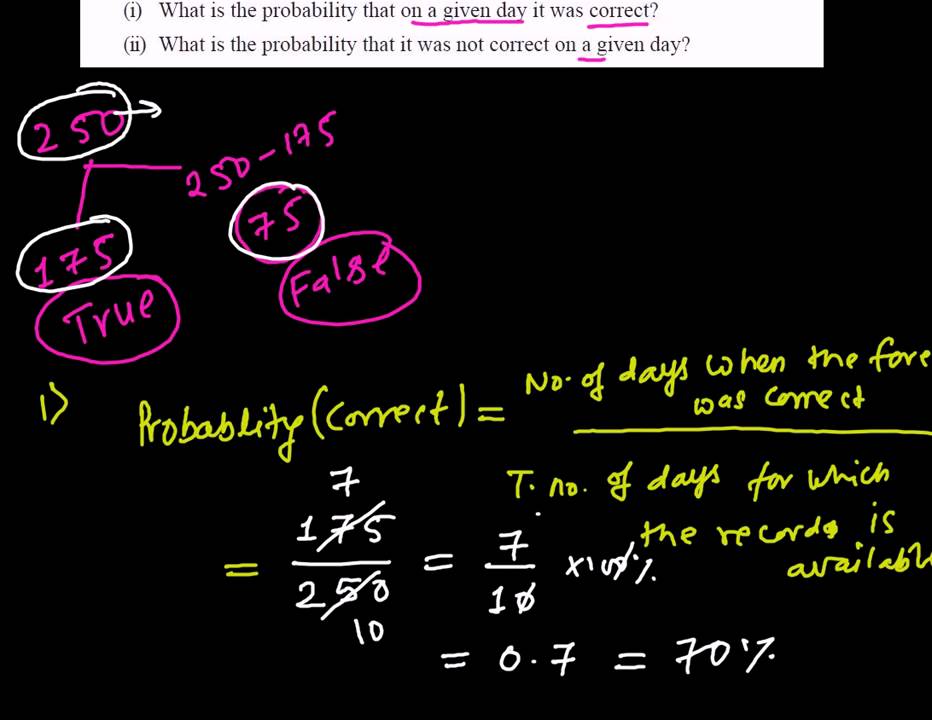 (i) What is the probability that on a given day it was correct?
(ii) What is the probability that it was not correct on a given day?
250
250-175
175
75
True
False
1)
Probablity (Correct) =
No. of days when the fore
was correct
T. no. of days for which
the records is
available
7
= 175/250 = 7/10 x100%
10
= 0.7 = 70%